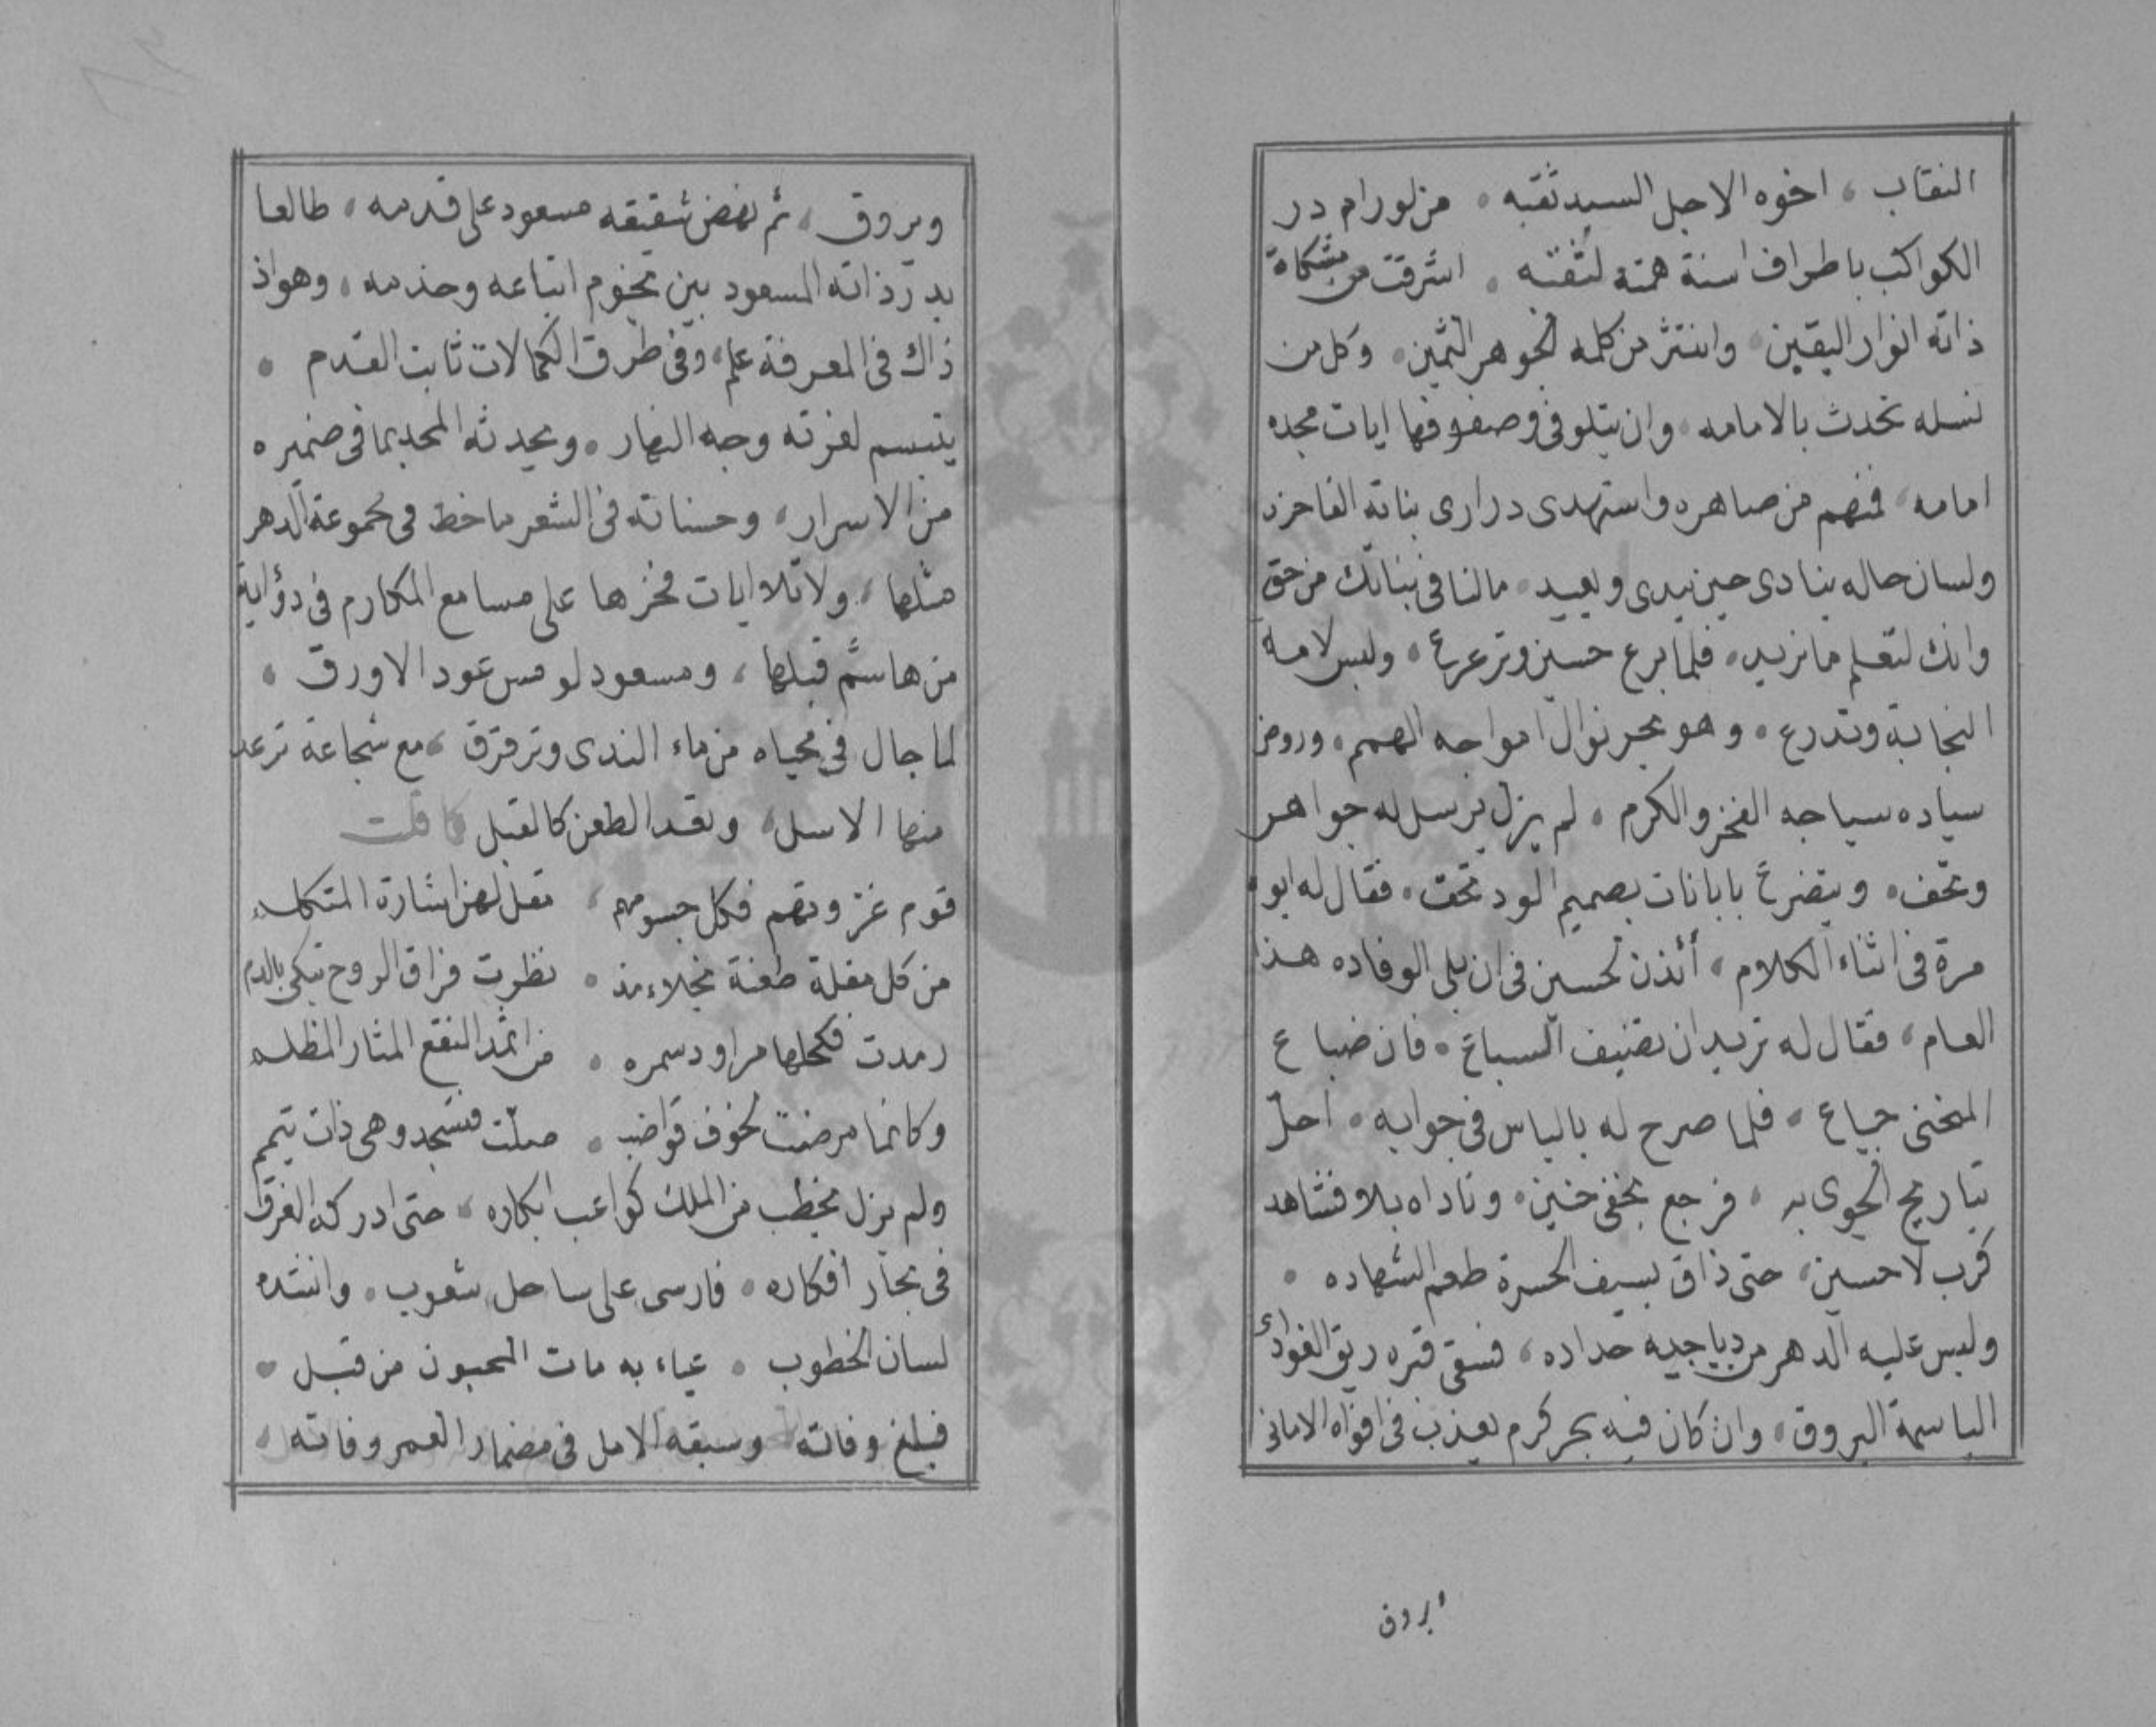 النقاب، اخوه الاجل السيد ثقبه، من لو رام در
الكواكب باطراف اسنة همته لثقبه، اشرقت من مشكاة
ذاته انوار اليقين، وانتثر من كلمه الجوهر الثمين، وكل من
نسله تحدث بالامامه، وان يتلو في وصفو فها ايات مجده
امامه، فمنهم من صاهره واستهدى درارى بناته الفاخره
ولسان حاله ينادى حين يبدى ويعيد، مالنا في بناتك من حق
وانك لتعلم ما نريد، فلما برع حسين وترعرع، ولبس لامة
النجابة وتدرع، وهو بحر نوال امواجه الهمم، وروض
سياده سياجه الفخر والكرم، لم يزل يرسل له جواهر
وتحف، ويتضرع بابانات بصميم الود تحف، فقال له ابوه
مرة في اثناء الكلام، أئذن لحسين في ان يلى الوفاده هذا
العام، فقال له تريد ان تضيف السباع، فان ضباع
المنحنى جياع، فلما صرح له بالياس في جوابه، احل
تباريح الجوى به، فرجع بخفى حنين، وناداه بلا فشاهد
كرب لا حسين، حتى ذاق بسيف الحسرة طعم الشهاده،
ولبس عليه الدهر من دياجيه حداده، فسقى قبره ريق الغوادى
الباسمة البروق، وان كان فيه بحر كرم يعذب في افواه الامانى
ويروق، ثم نهض شقيقه مسعود على قدمه، طالعا
بدر ذاته المسعود بين نجوم اتباعه وخدمه، وهو اذ
ذاك في المعرفة علم، وفي طرق الكمالات ثابت القدم،
يتبسم لغرته وجه النهار، ويحدثه المجد بما في ضميره
من الاسرار، وحسناته في الشعر ما خط في مجموعة الدهر
مثلها، ولا تلا ايات فخرها على مسامع المكارم في دؤابة
من هاشم قبلها، ومسعود لو مس عود الاورق،
لما جال في محياه من ماء الندى وترقرق، مع شجاعة ترعد
منها الاسل، وتعد الطعن كالقبل كما قلت
قوم غزوتهم فكل جسومهم، مقل لهن اشارة المتكلم
من كل مقلة طعنة نجلاء مذ، نظرت فراق الروح تبكى بالدم
رمدت فكحلها مراود سمره، من اثمد النقع المثار المظلم
وكانما مرضت لخوف قواضب، صلت فتسجد وهي ذات تيمم
ولم يزل يخطب من الملك كواعب ابكاره، حتى ادركه الغرق
في بحار افكاره، فارسى على ساحل شعوب، وانشده
لسان الخطوب، عياء به مات المحبون من قبل،
فبلغ وفاته وسبقه الامل في مضمار العمر وفاته،
ويروق